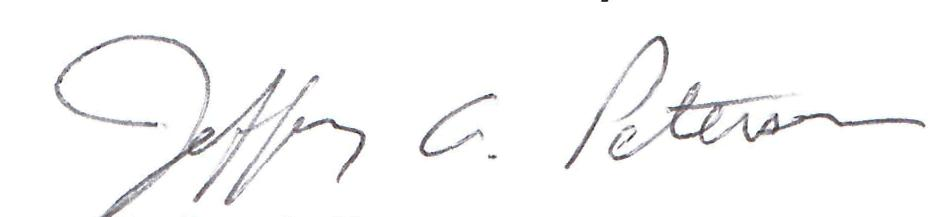 Jeffrey G. Peterson